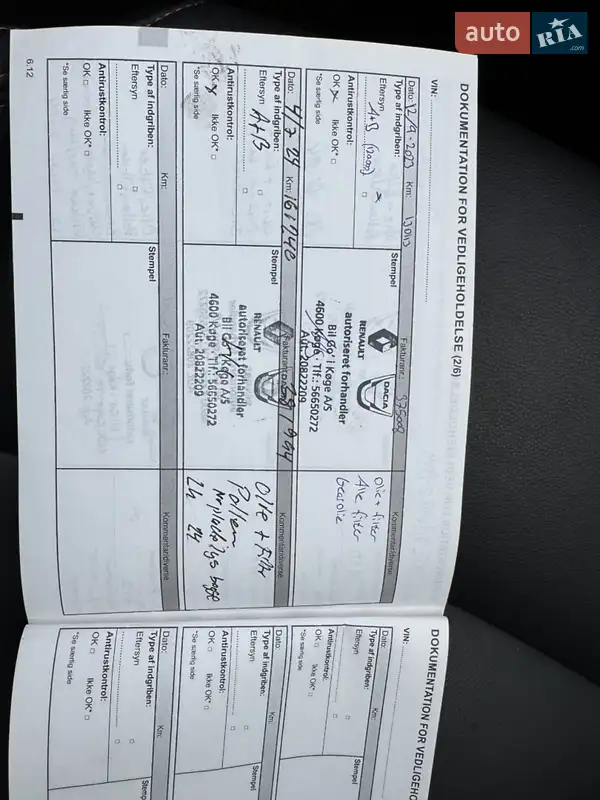 auto RIA.com
DOKUMENTATION FOR VEDLIGEHOLDELSE (2/6)
VIN:
Dato: 12/9-2023 Km: Fakturanr.: Kommentar/diverse
Type af indgriben: Stempel
A+B
Eftersyn
Antirustkontrol:
OK Ikke OK*
*Se særlig side
RENAULT DACIA
autoriseret forhandler
Bil Go' i Køge A/S
4600 Køge · Tlf.: 56650272
Aut. 20822209
Olie + filter
Alle filter
Gearolie
Dato: 4/7 24 Km: 161740 Fakturanr.: Kommentar/diverse
Type af indgriben: Stempel
A+B
Eftersyn
Antirustkontrol:
OK Ikke OK*
*Se særlig side
RENAULT
autoriseret forhandler
Bil Go' i Køge A/S
4600 Køge · Tlf.: 56650272
Aut. 20822209
Olie + Filter
Pollen
Nrpladelys bagpå
Dato: Km: Fakturanr.: Kommentar/diverse
Type af indgriben: Stempel
Eftersyn
Antirustkontrol:
OK Ikke OK*
*Se særlig side
6.12
DOKUMENTATION FOR VEDLIGEHO
VIN:
Dato: Km:
Type af indgriben: Stempel
Eftersyn
Antirustkontrol:
OK Ikke OK*
*Se særlig side
Dato: Km:
Type af indgriben: Stempel
Eftersyn
Antirustkontrol:
OK Ikke OK*
*Se særlig side
Dato: Km:
Type af indgriben: Stempel
Eftersyn
Antirustkontrol:
OK Ikke OK*
*Se særlig side